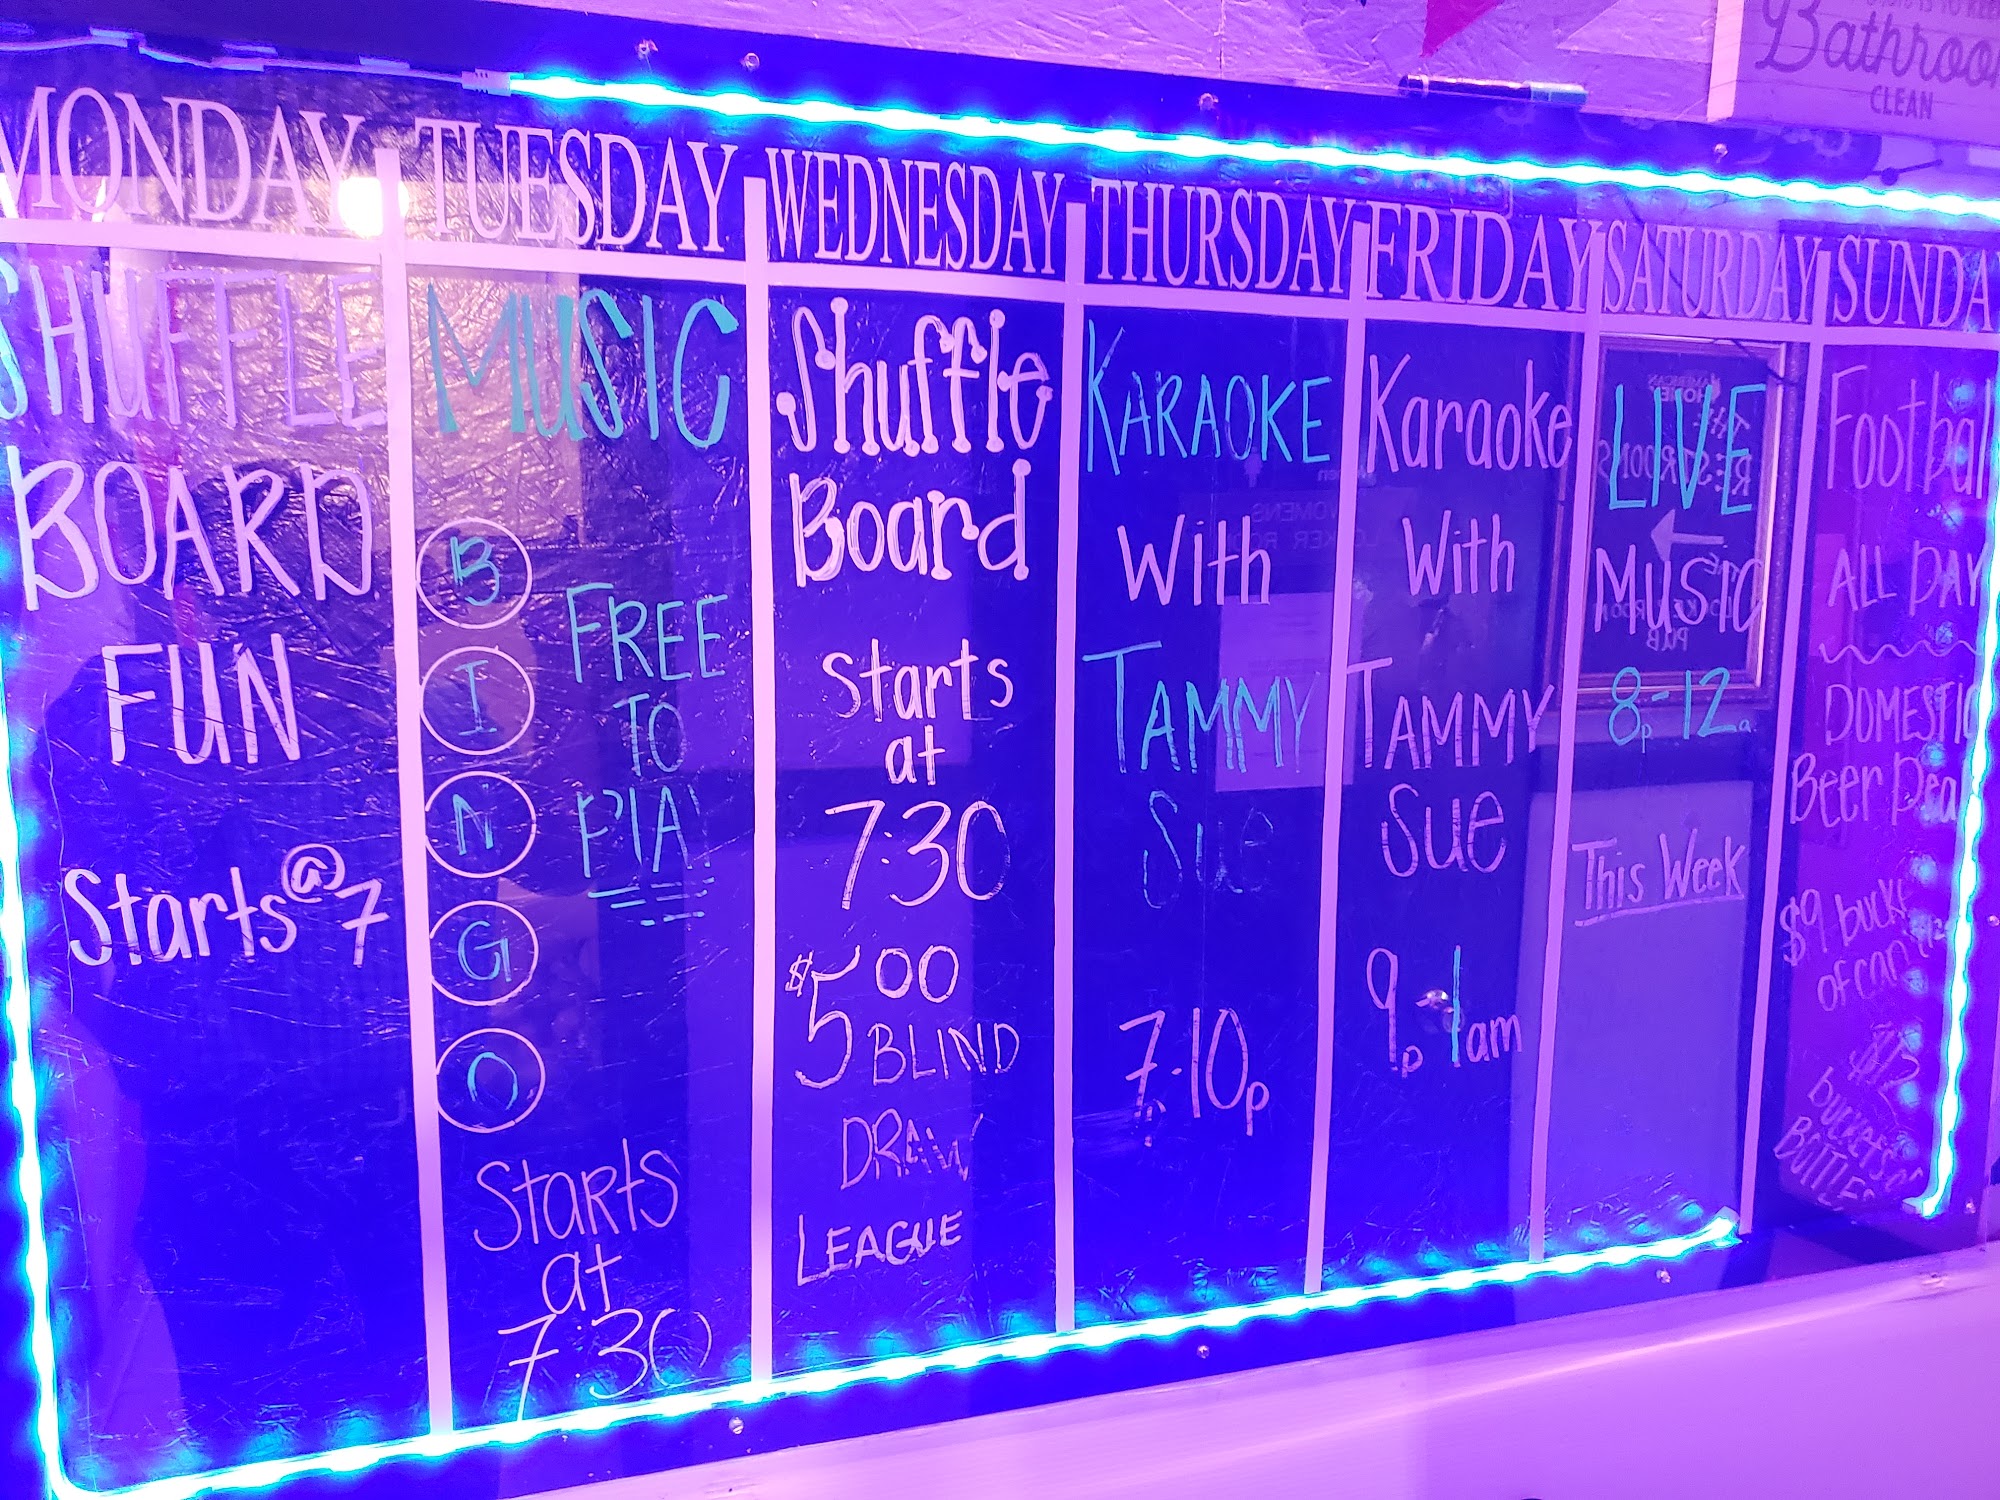 Bathroom
CLEAN
MONDAY
SHUFFLE
BOARD
FUN
Starts @ 7
TUESDAY
MUSIC
B
I
N
G
O
FREE
TO
PLAY
Starts
at
7:30
WEDNESDAY
Shuffle
Board
Starts
at
7:30
$5.00
BLIND
DRAW
LEAGUE
THURSDAY
KARAOKE
With
TAMMY
Sue
7p-10p
FRIDAY
Karaoke
With
TAMMY
Sue
9p-1am
SATURDAY
LIVE
MUSIC
8p-12a
This Week
SUNDA
Football
ALL DAY
DOMESTIC
Beer Dea
$9 bucke
of can
$12
buckets of
BOTTLES